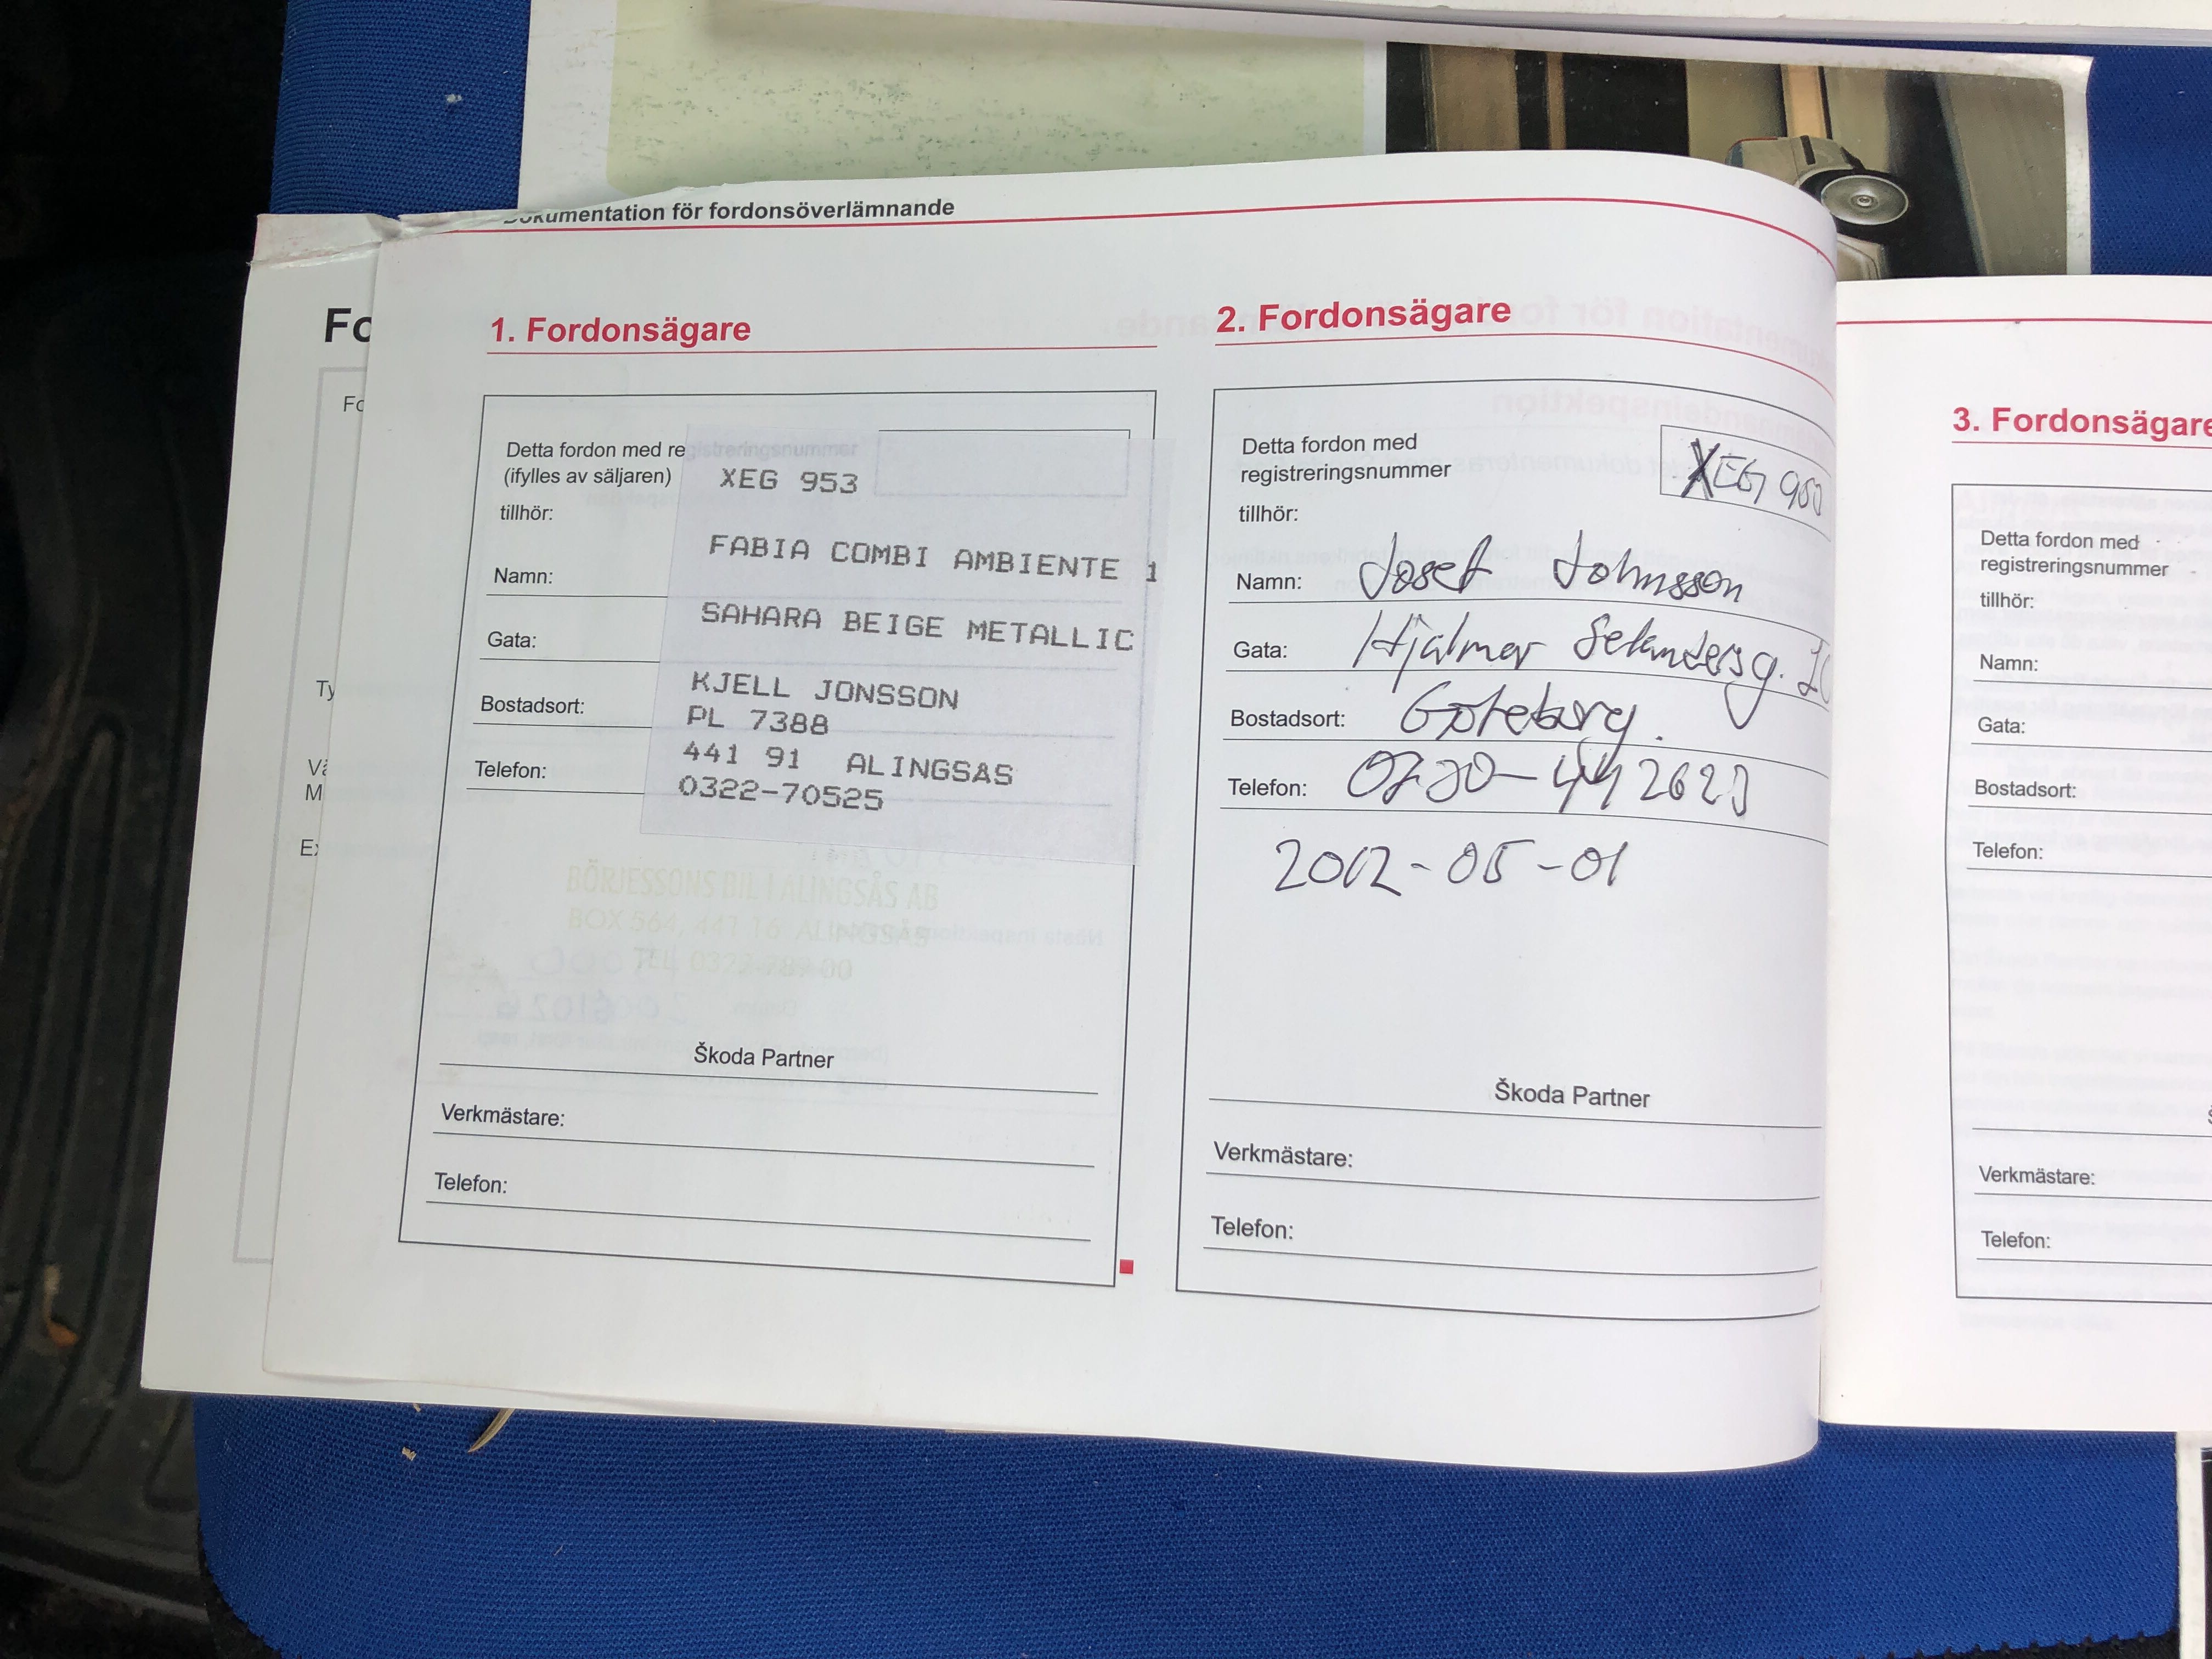 Dokumentation för fordonsöverlämnande
Fo
Fo
Ty
Vä
M
Ex
1. Fordonsägare
Detta fordon med registreringsnummer
(ifylles av säljaren)
XEG 953
tillhör:
FABIA COMBI AMBIENTE 1
Namn:
SAHARA BEIGE METALLIC
Gata:
KJELL JONSSON
Bostadsort:
PL 7388
441 91 ALINGSAS
Telefon:
0322-70525
BÖRJESSONS BIL I ALINGSÅS AB
BOX 564, 441 16 ALINGSÅS
Škoda Partner
Verkmästare:
Telefon:
2. Fordonsägare
Detta fordon med
registreringsnummer
XEG
tillhör:
Namn: Josef Johnsson
Gata: Hjalmar Selandersg.
Bostadsort: Göteborg.
Telefon:
2012-05-01
Škoda Partner
Verkmästare:
Telefon:
3. Fordonsägare
Detta fordon med
registreringsnummer
tillhör:
Namn:
Gata:
Bostadsort:
Telefon:
Verkmästare:
Telefon: